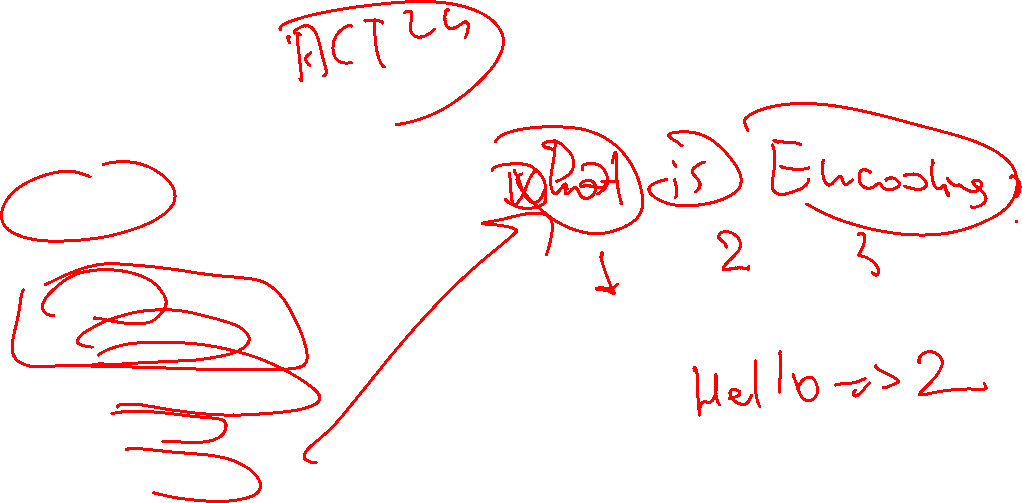 ACT 24
is Encoding
1 2 3
Hello => 2